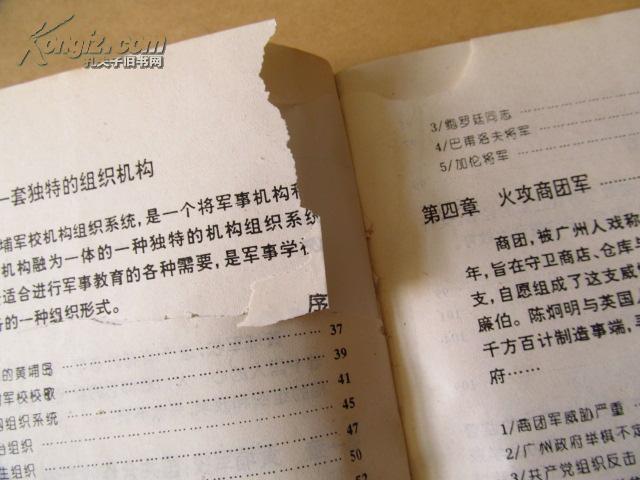 Kongfz.com
孔夫子旧书网
一套独特的组织机构
埔军校机构组织系统，是一个将军事机构和
机构融为一体的一种独特的机构组织系统
适合进行军事教育的各种需要，是军事学
的一种组织形式。
序
37
的黄埔岛 39
军校校歌 41
组织系统 45
组织 47
生组织 50
52
3/鲍罗廷同志
4/巴甫洛夫将军
5/加伦将军
第四章 火攻商团军
商团，被广州人戏称
年，旨在守卫商店、仓库与
支，自愿组成了这支威
廉伯。陈炯明与英国
千方百计制造事端，
府……
1/商团军威胁严重
2/广州政府举棋不定
3/共产党组织反击